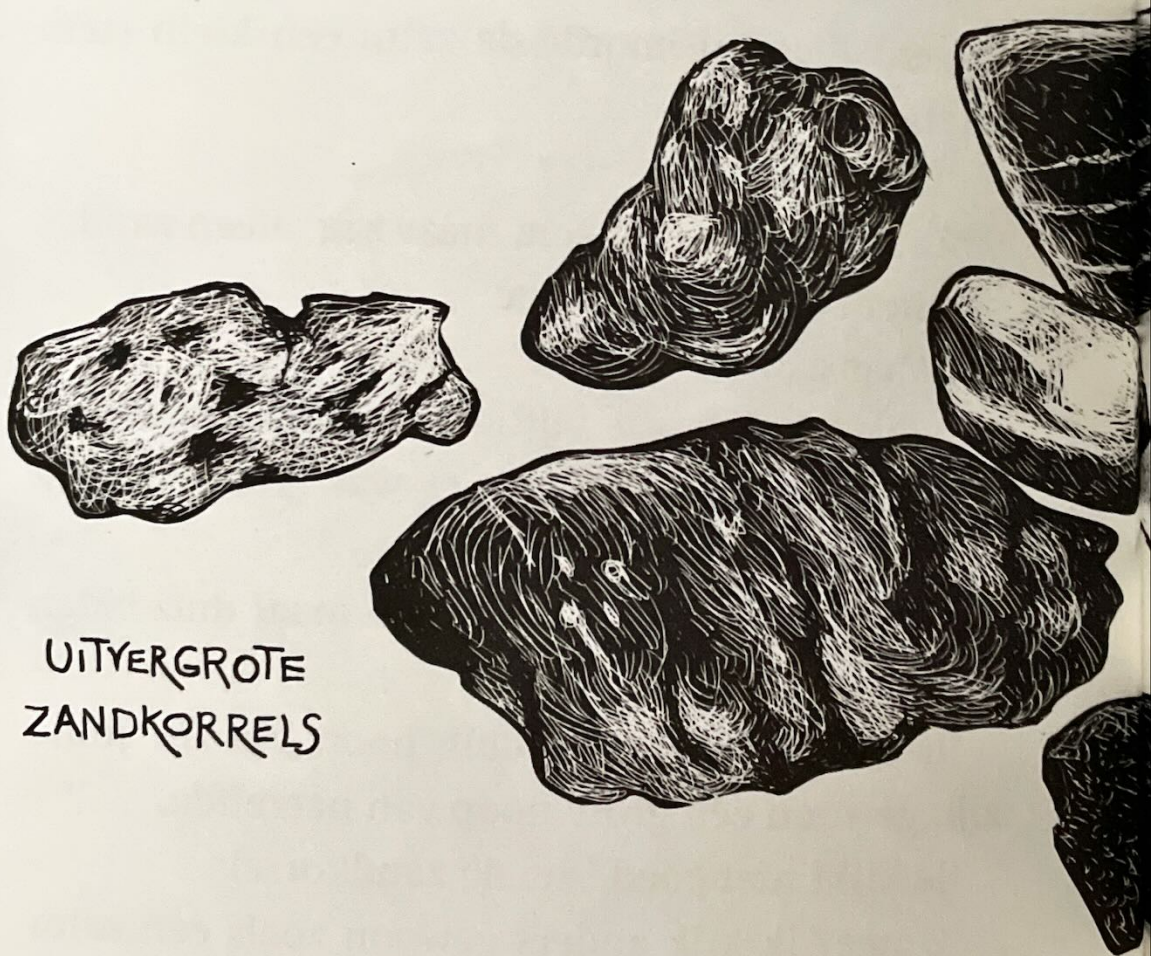 UiTVERGROTE
ZANDKORRELS